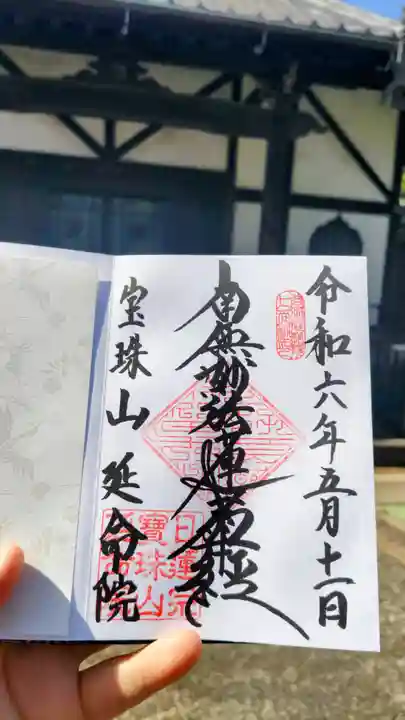 令和六年五月十一日
南無妙法蓮華経
宝珠山延命院
日蓮宗
寳珠山